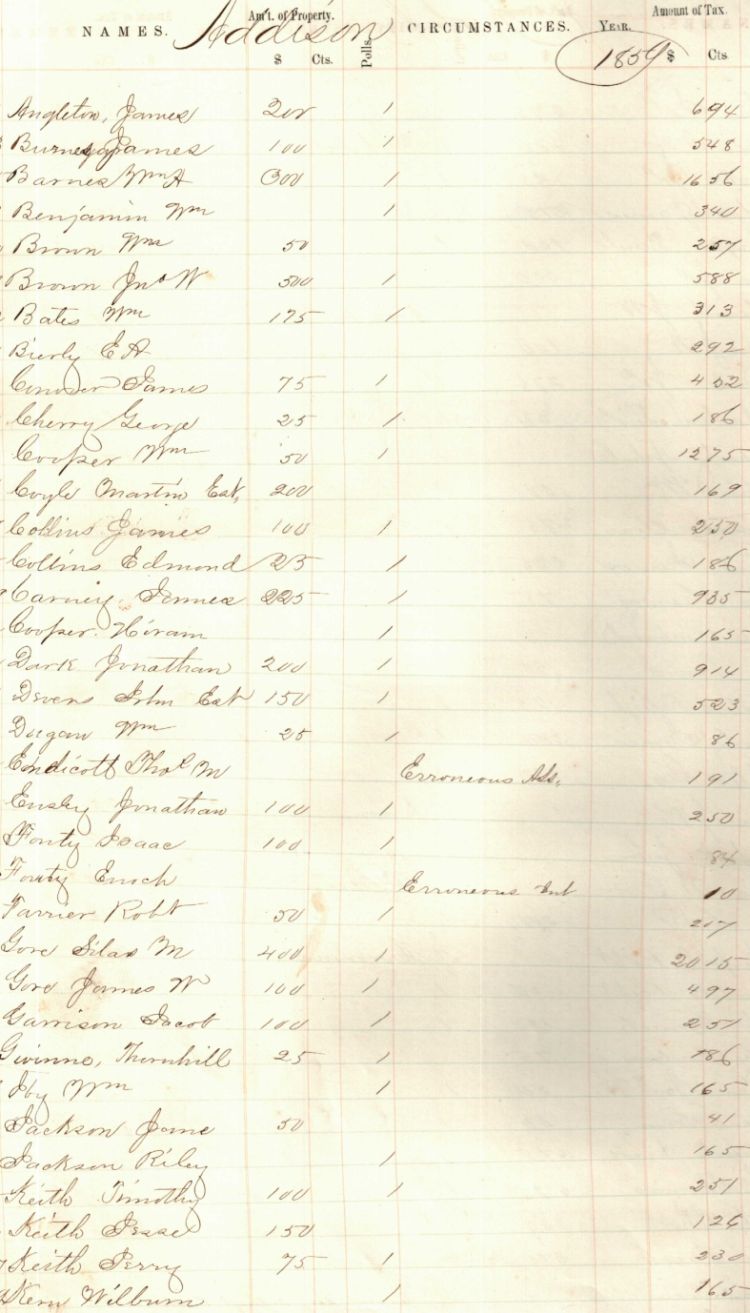 NAMES. Addison Am't. of Property. Polls. CIRCUMSTANCES. YEAR. Amount of Tax.
$ Cts. 1859 $ Cts
Angleton, James 200 1 694
Burney James 100 1 548
Barnes Wm H 300 1 1656
Benjamin Wm 1 340
Brown Wm 50 257
Brown Jno W 500 1 588
Bates Wm 175 1 313
Bierly E A 292
Conover James 75 1 402
Cherry George 25 1 186
Cooper Wm 50 1 1275
Coyle Martin Est, 200 169
Collins James 100 1 250
Collins Edmond 25 1 186
Carney James 225 1 935
Cooper Hiram 1 165
Dark Jonathan 200 1 914
Devens John Est 150 1 523
Dugan Wm 25 1 86
Endicott Thos M Erroneous Ass, 191
Ensley Jonathan 100 1 250
Fouty Isaac 100 1 84
Fouty Enoch Erroneous Int 10
Farrier Robt 50 1 207
Gore Silas M 400 1 2015
Gore James W 100 1 497
Garrison Jacob 100 1 251
Gwinne, Thornhill 25 1 186
Wm 1 165
Jackson Jane 50 41
Jackson Riley 1 165
Keith Timothy 100 1 251
Keith Isaac 150 126
Keith Perry 75 1 230
Kern Wilburn 1 165